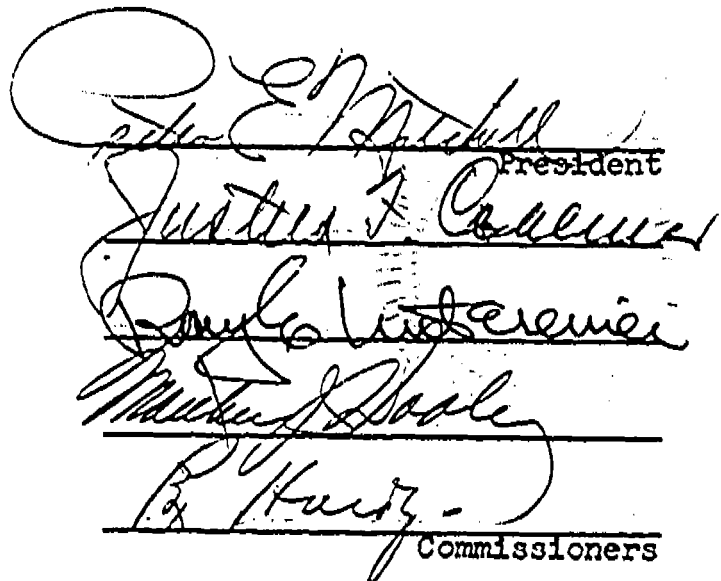 Peter E. Mitchell
President
Justus F. Craemer
Matthew J. Dooley
R Hardy
Commissioners